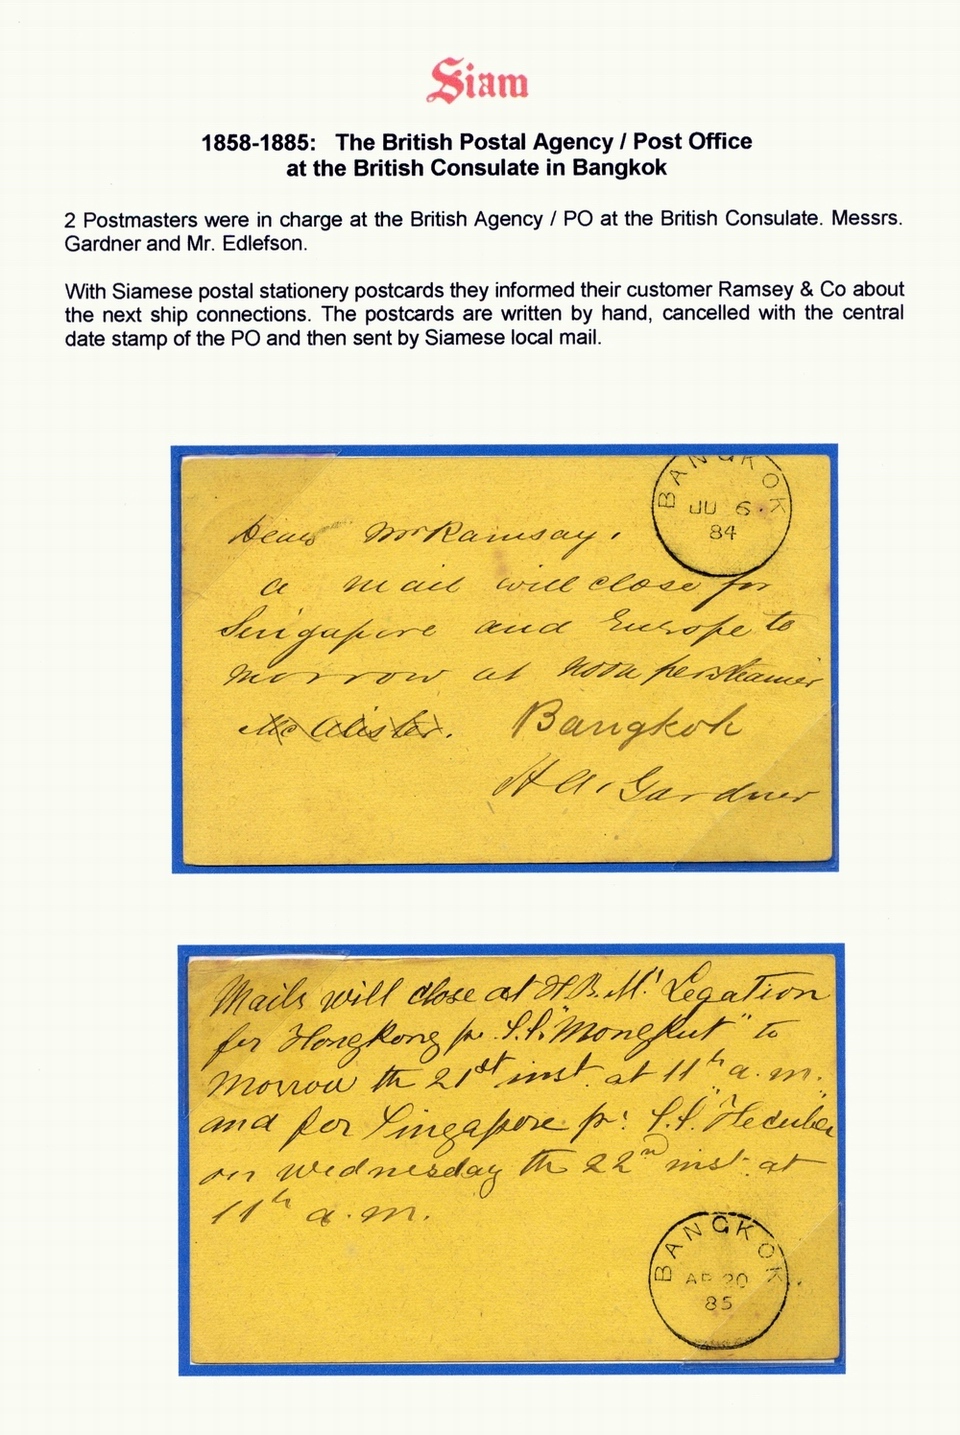 Siam
1858-1885: The British Postal Agency / Post Office
at the British Consulate in Bangkok
2 Postmasters were in charge at the British Agency / PO at the British Consulate. Messrs.
Gardner and Mr. Edlefson.
With Siamese postal stationery postcards they informed their customer Ramsey & Co about
the next ship connections. The postcards are written by hand, cancelled with the central
date stamp of the PO and then sent by Siamese local mail.
BANGKOK
JU 6
84
Dear Mr Ramsay,
a mail will close for
Singapore and Europe to
morrow at noon per steamer
Mc Alister. Bangkok
H A. Gardner
Mails will close at H.B.M's Legation
for Hongkong pr S.S. "Mongkut" to
morrow the 21st inst. at 11th a.m.
and for Singapore pr. S.S. "Hecuba"
on Wednesday the 22nd inst. at
11th a.m.
BANGKOK
AP 20
85